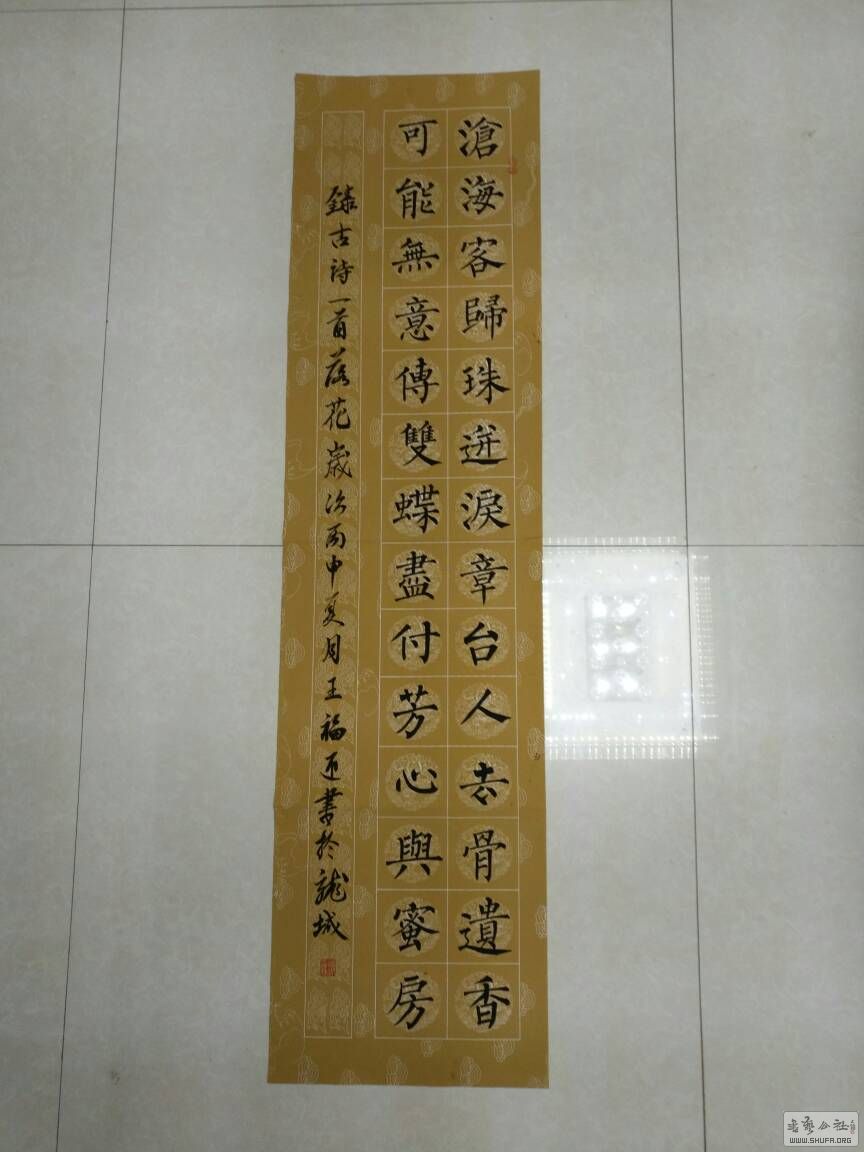 滄海客歸珠迸淚章台人去骨遺香
可能無意傳雙蝶盡付芳心與蜜房
錄古詩一首落花歲次丙申夏月王福近書於龍城
WWW.SHUFA.ORG